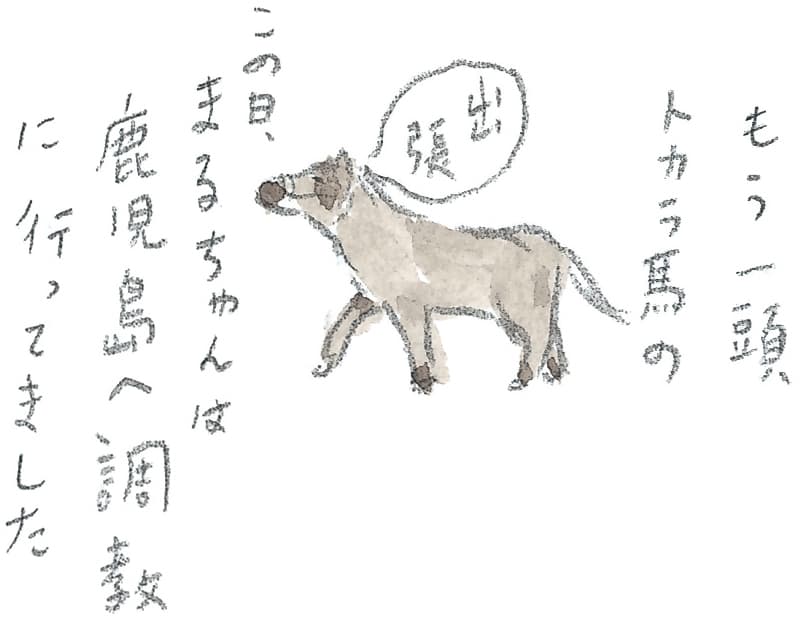 もう一頭
トカラ馬の
出
張
この日、
まるちゃんは
鹿児島へ調教
に行ってました